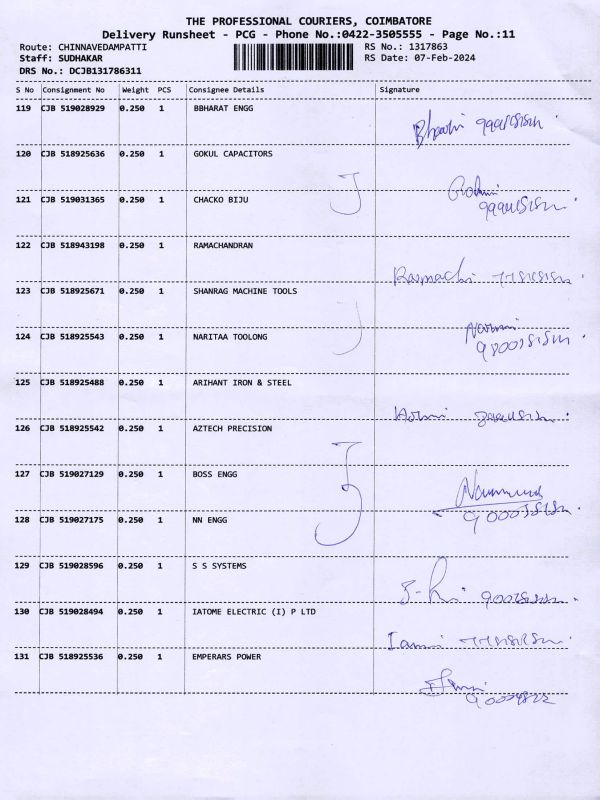 THE PROFESSIONAL COURIERS, COIMBATORE
Delivery Runsheet - PCG - Phone No.:0422-3505555 - Page No.:11
Route: CHINNAVEDAMPATTI RS No.: 1317863
Staff: SUDHAKAR RS Date: 07-Feb-2024
DRS No.: DCJB131786311
S No Consignment No Weight PCS Consignee Details Signature
119 CJB 519028929 0.250 1 BBHARAT ENGG
120 CJB 518925636 0.250 1 GOKUL CAPACITORS
121 CJB 519031365 0.250 1 CHACKO BIJU
122 CJB 518943198 0.250 1 RAMACHANDRAN
123 CJB 518925671 0.250 1 SHANRAG MACHINE TOOLS
124 CJB 518925543 0.250 1 NARITAA TOOLONG
125 CJB 518925488 0.250 1 ARIHANT IRON & STEEL
126 CJB 518925542 0.250 1 AZTECH PRECISION
127 CJB 519027129 0.250 1 BOSS ENGG
128 CJB 519027175 0.250 1 NN ENGG
129 CJB 519028596 0.250 1 S S SYSTEMS
130 CJB 519028494 0.250 1 IATOME ELECTRIC (I) P LTD
131 CJB 518925536 0.250 1 EMPERARS POWER